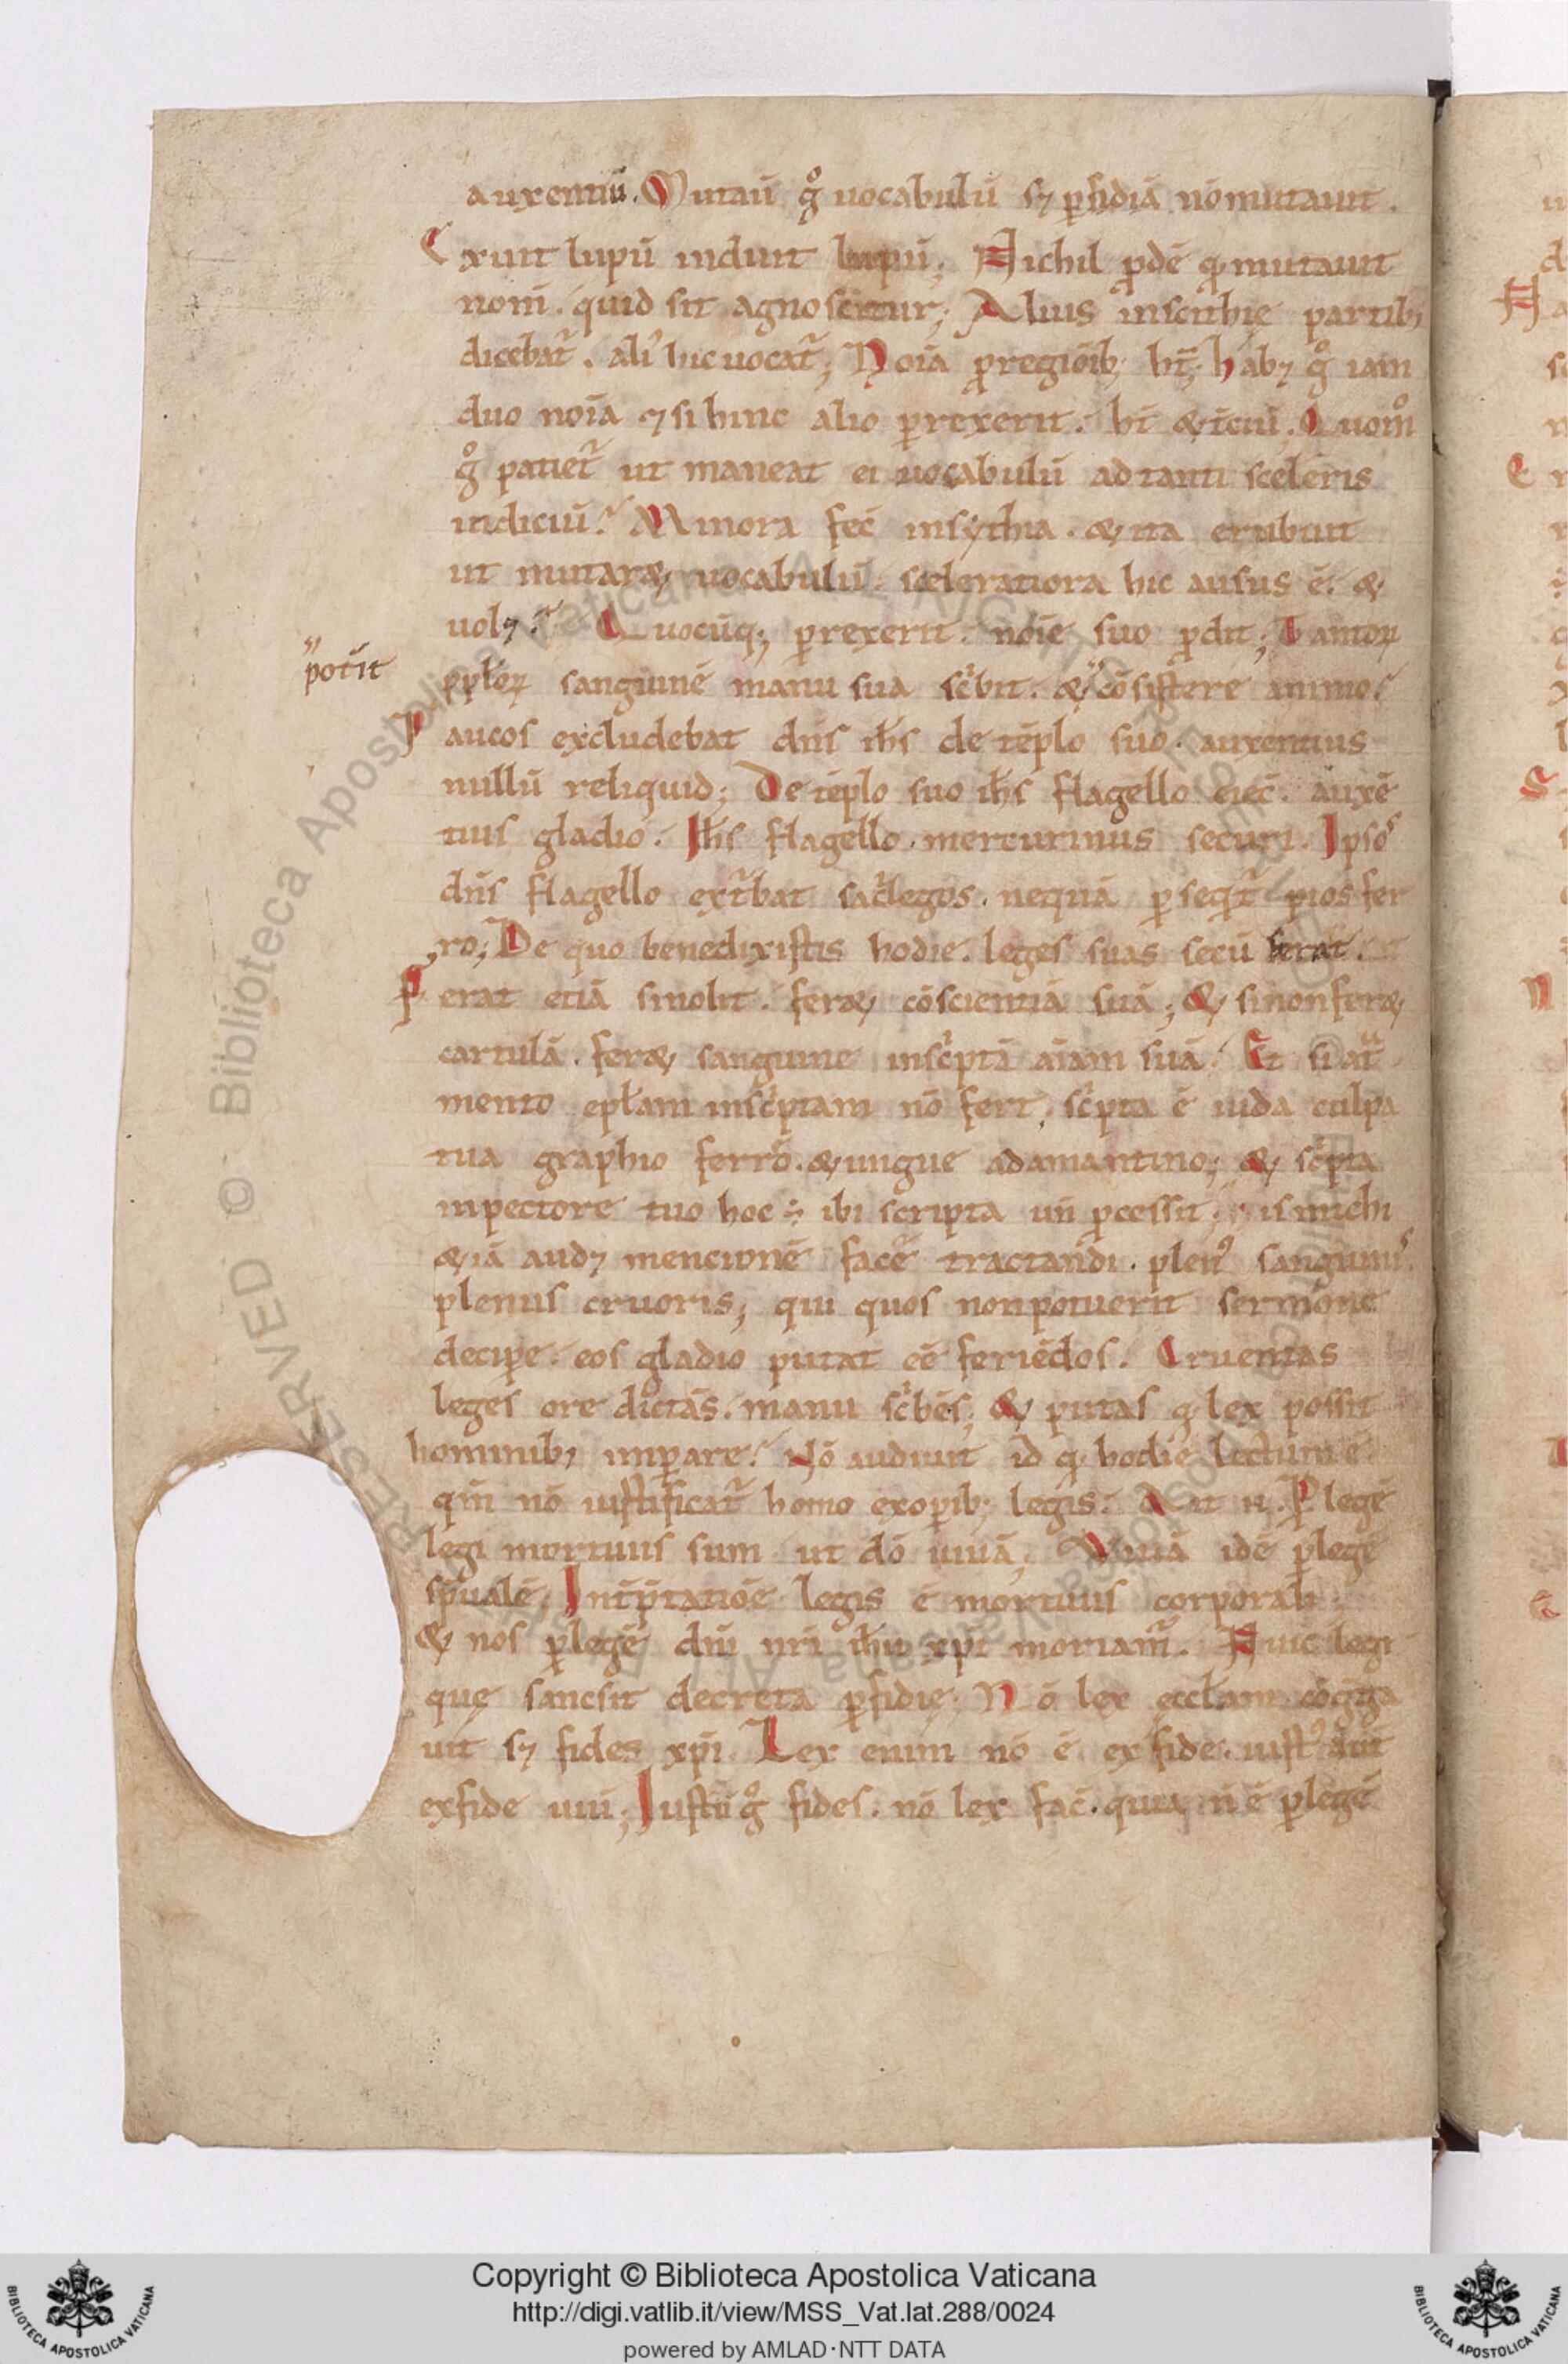 auxentiū. Mutaū g̊ uocabulū sꝫ ꝑfidiā nō mutauit.
Exuit lupū induit lupū; Nichil ꝓdē qđ mutauit
nom̄. quid sit agnoscitur; Alius inscithie partibꝫ
dicebat᷑. ali᷒ hic uocat᷑; Noīa ꝓ regiōib; ht̄; habꝫ g̊ iam
duo noīa ⁊ si hinc alio ꝑrexerit. ht̄ & t̄ciū. Quom̊
g̊ patiet᷑ ut maneat ei uocabulū ad tanti sceleris
indiciū? Minora fec̄ insẏthia. & ita erubuit
ut mutar& uocabulū. sceleratiora hic ausus ē. &
uolꝫ? Quocūq; ꝑrexerit. noīe suo ꝓdit; Tantoꝝ
pp̄loꝝ sanguinē manu sua sc͛bit. & cōsistere animo?
potit̄
Paucos excludebat dn̄s ih̄s de tēplo suo. auxentius
nullū reliquid; De tēplo suo ih̄s flagello eiec̄. auxē
tius gladio. Ih̄s flagello. mercurinus securi. Ipsos
dn̄s flagello ext᷑bat sac͛legos. nequā ꝑseqt᷑ pios fer
ro; De quo benedixistis hodie. leges suas secū ferat.
Ferat etiā si nolit. fer& cōscientiā suā; & si non fer&
cartulā. fer& sanguine insc͛ptā aīam suā. Et si at᷑
mento epl̄am insc͛ptam nō fert. sc͛pta ē iuda culpa
tua graphio ferro. & ungue adamantino; & sc͛pta
inpectore tuo hoc ÷ ibi scripta un̄ ꝓcessit. is michi
&iā audꝫ mencionē facē tractandi. plen᷒ sanguinis
plenus cruoris; qui quos non potuerit sermone
deciꝑe. eos gladio putat eē feriēdos. Cruentas
leges ore dictās. manu sc͛bēs; & putas qđ lex possit
hominibꝫ imꝑare? Nō audiuit id qđ hodie lectum ē
qm̄ nō iustificat᷑ homo exoꝑib; legis. Ait n. ꝑ legē
legi mortuus sum. ut dō uiuā; Viuā idē ꝑ legē
sp̄ualē; Int̄p̄tatiōe legis ē mortuus corporali.
& nos ꝑ legē dn̄i nr̄i ih̄u xp̄i moriam᷑. Huic legi
quę sancsit decreta ꝑfidię; Nō lex ęccl̄am cōg᷑ga
uit sꝫ fides xp̄i. Lex enim nō ē exfide. iust᷒ aūt
exfide uiū; Iustū g̊ fides. nō lex fac̄. quia n̄ ē ꝑ legē
Copyright © Biblioteca Apostolica Vaticana
http://digi.vatlib.it/view/MSS_Vat.lat.288/0024
powered by AMLAD·NTT DATA